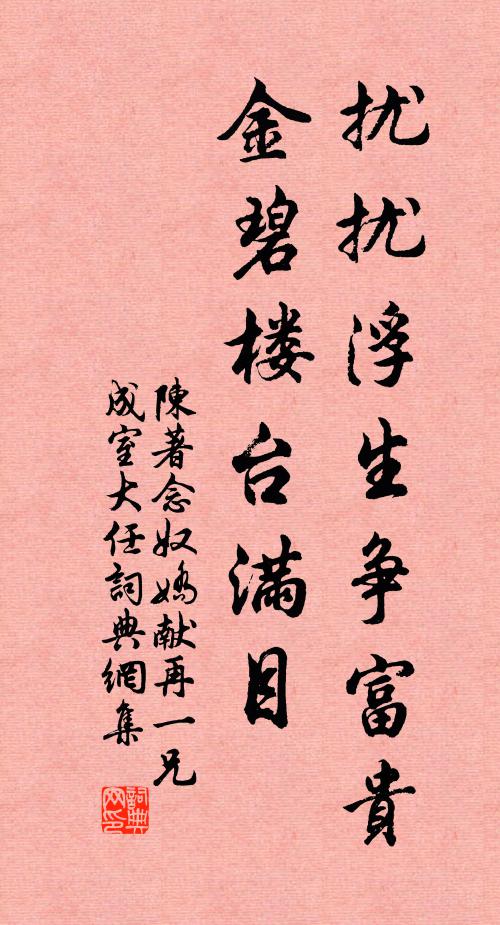 扰扰浮生争富貴
金碧楼台满目
陳著念奴嬌献再一兄
成室大任詞典網集
詞典
网印